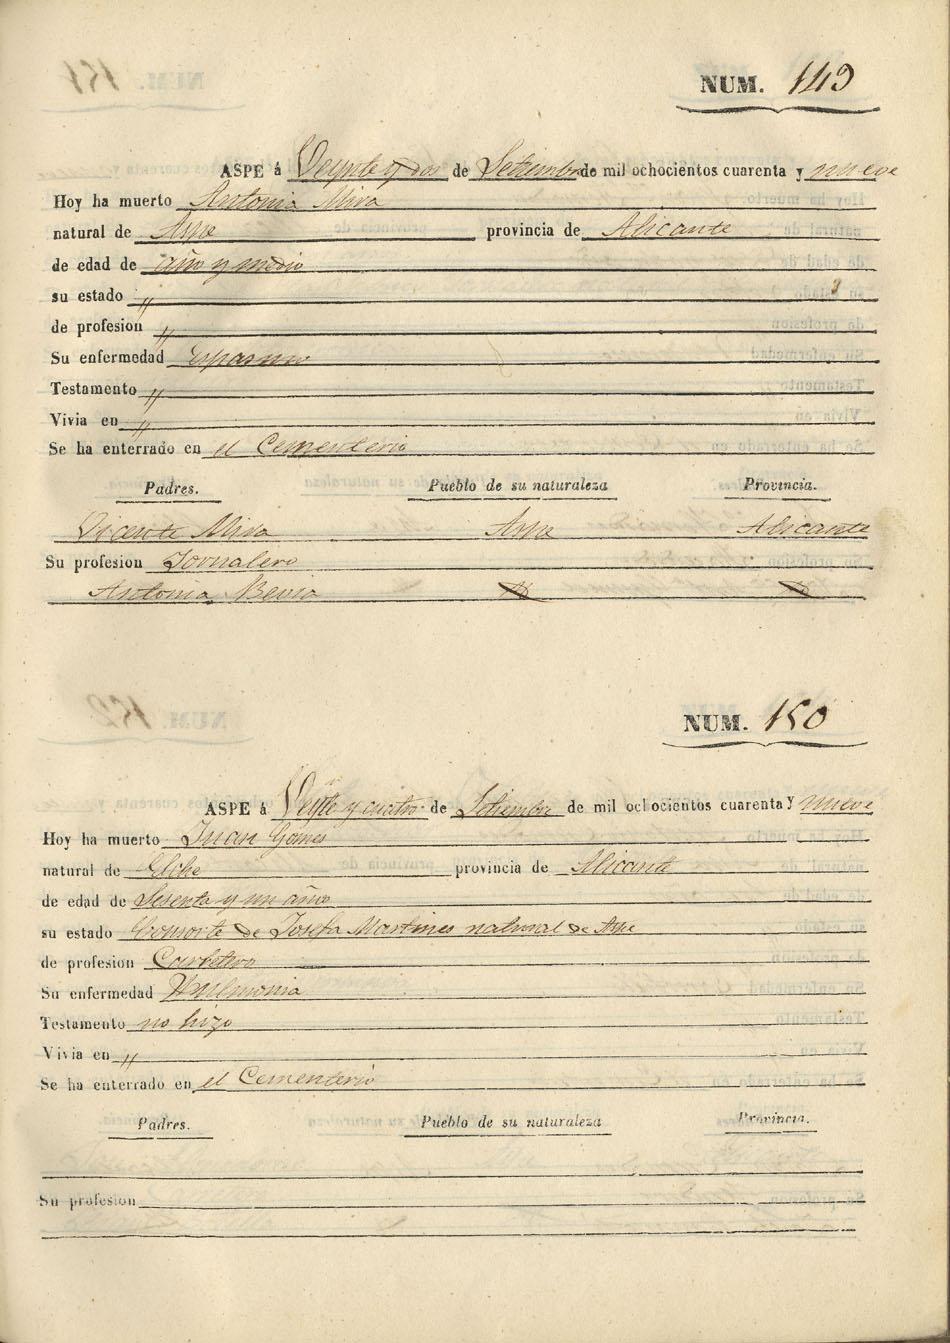 NUM. 149
ASPE á Veynte y dos de Setiembre de mil ochocientos cuarenta y nueve
Hoy ha muerto Antonia Mira
natural de Aspe provincia de Alicante
de edad de año y medio
su estado "
de profesion "
Su enfermedad espasmo
Testamento "
Vivia en "
Se ha enterrado en el Cementerio
Padres. Pueblo de su naturaleza Provincia.
Vicente Mira Aspe Alicante
Su profesion Jornalero
Antonia Bevia
NUM. 150
ASPE á Veinte y cuatro de Setiembre de mil ochocientos cuarenta y nueve
Hoy ha muerto Juan Gomes
natural de Elche provincia de Alicante
de edad de Sesenta y un año
su estado Consorte de Josefa Martines natural de Aspe
de profesion
Su enfermedad Pulmonia
Testamento no hizo
Vivia en "
Se ha enterrado en el Cementerio
Padres. Pueblo de su naturaleza Provincia.
Su profesion